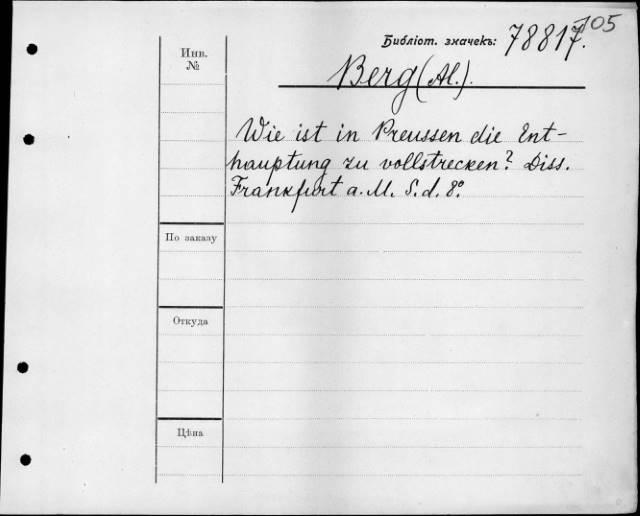 105
Библіот. значекъ: 78817.
Инв.
№
Berg (Al.).
Wie ist in Preussen die Ent-
hauptung zu vollstrecken? Diss.
Frankfurt a. M. S. d. 8°.
По заказу
Откуда
Цѣна